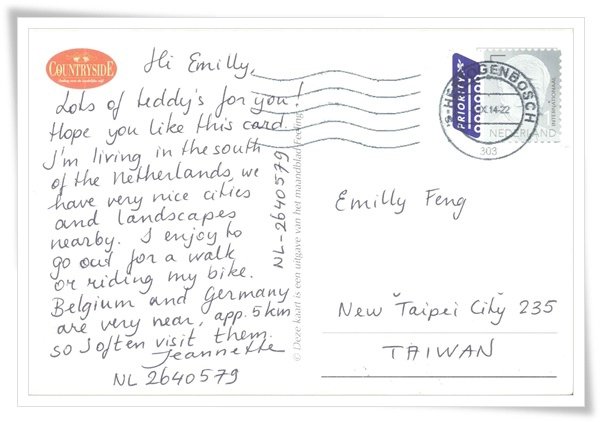 COUNTRYSIDE
Hi Emilly,
Lots of teddy's for you!
Hope you like this card.
I'm living in the south
of the Netherlands, we
have very nice cities
and landscapes
nearby. I enjoy to
go out for a walk
or riding my bike.
Belgium and Germany
are very near, app. 5 km
so I often visit them.
Jeannette
NL 2640579
NL-2640579
© Deze kaart is een uitgave van het maandblad
PRIORITY
INTERNATIONAAL
NEDERLAND
'S-HERTOGENBOSCH
X.14-22
303
Emilly Feng
New Taipei City 235
TAIWAN